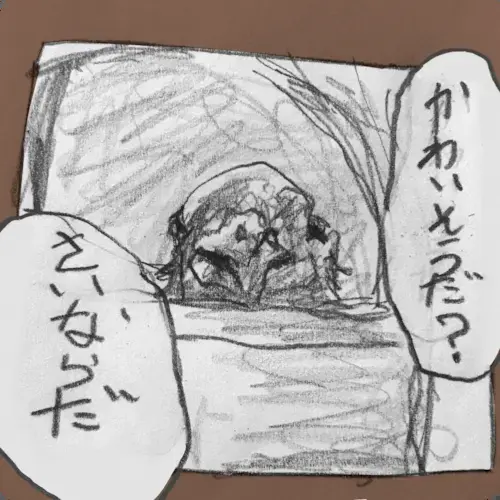 かわいそうだ?
さいならだ